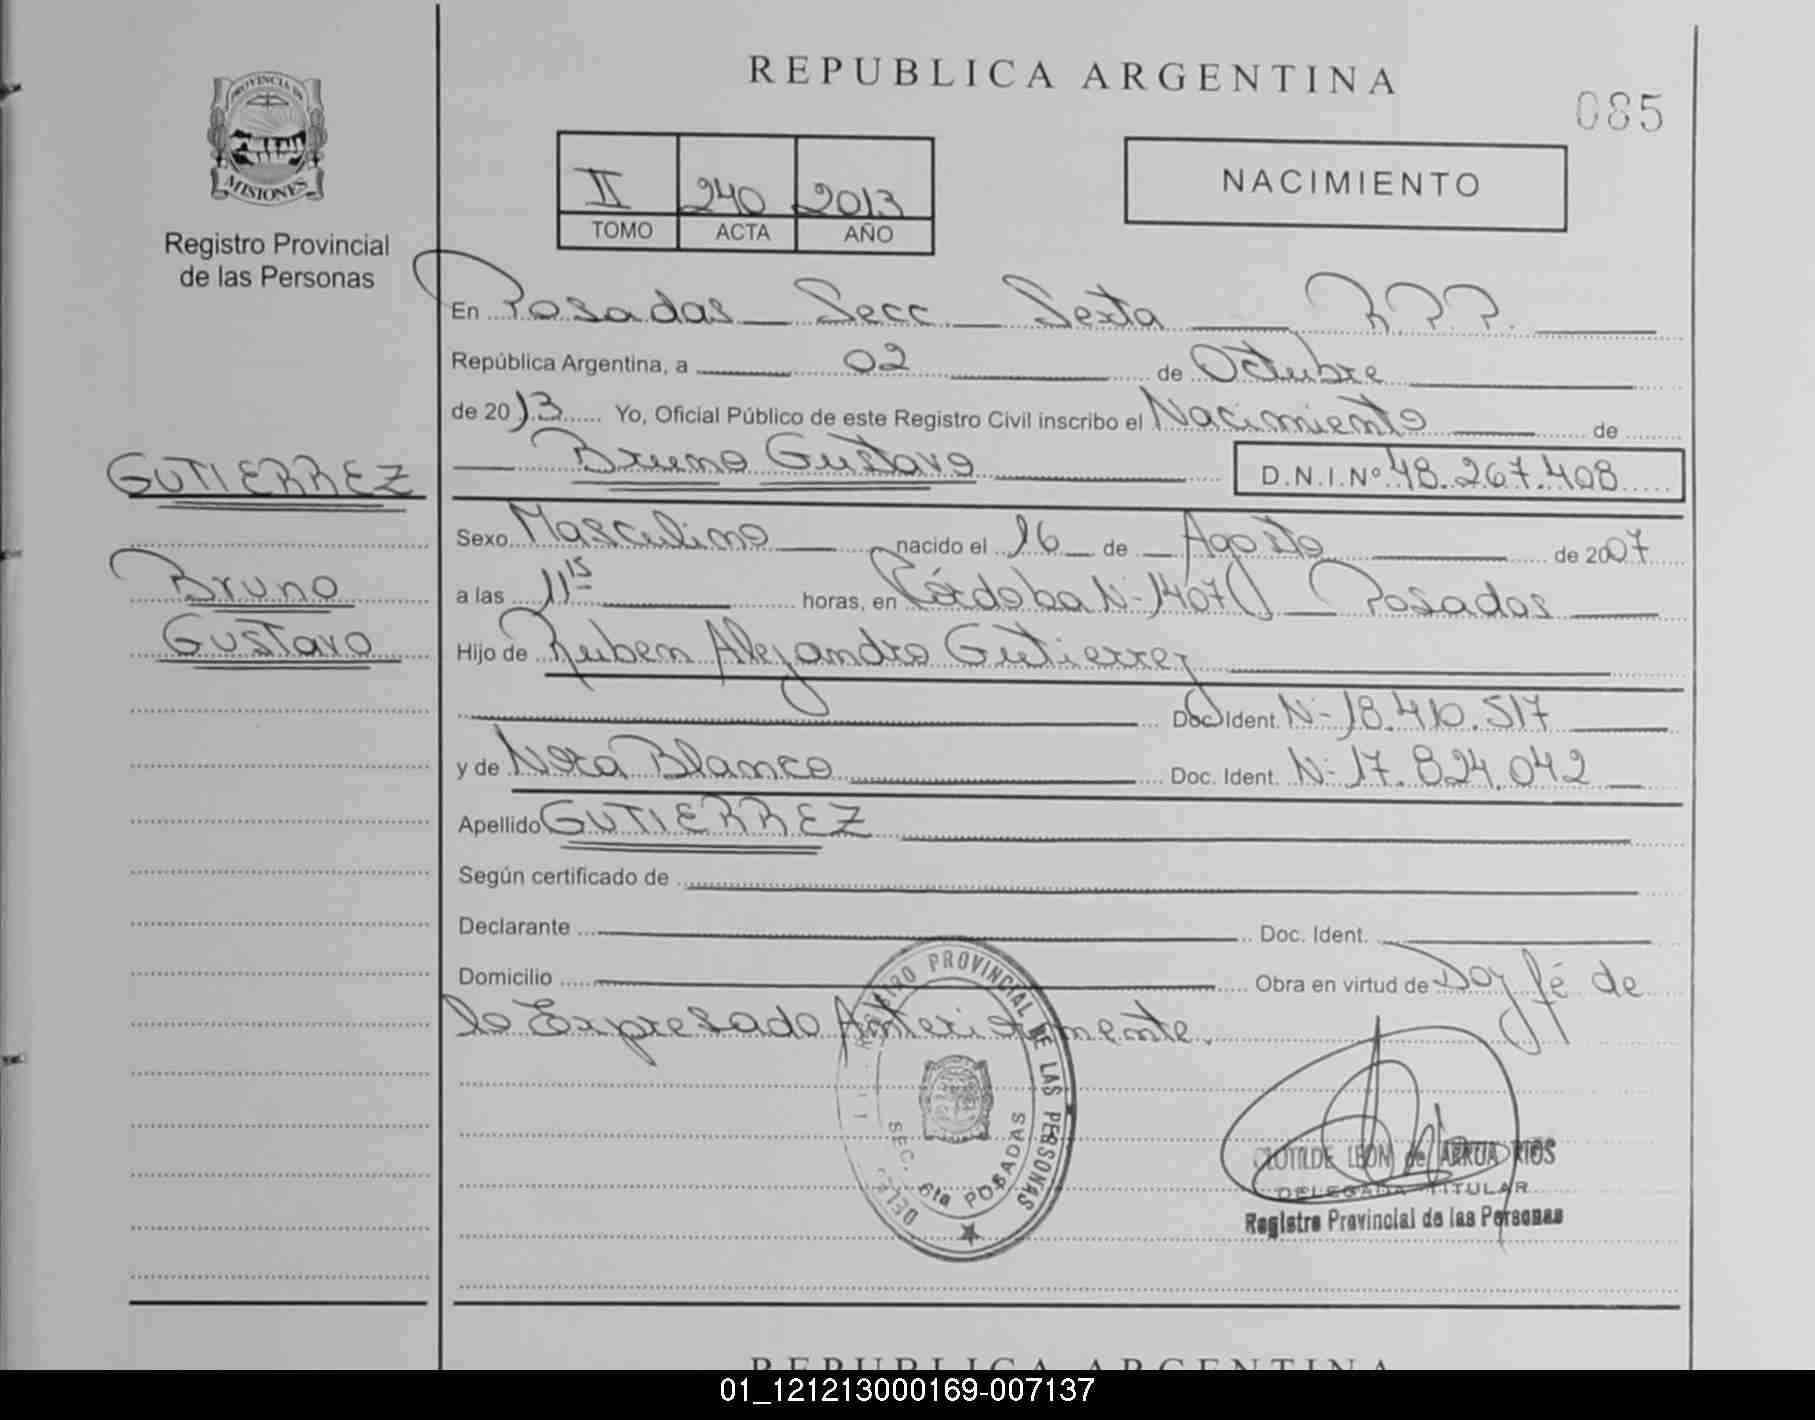 REPUBLICA ARGENTINA
085
PROVINCIA DE
MISIONES
Registro Provincial
de las Personas
II 240 2013
TOMO ACTA AÑO
NACIMIENTO
En Posadas Secc. Sexta R.P.P.
República Argentina, a 02 de Octubre
de 2013 Yo, Oficial Público de este Registro Civil inscribo el Nacimiento de
Bruno Gustavo D.N.I.Nº 48.267.408
GUTIERREZ
Bruno
Gustavo
Sexo Masculino nacido el 16 de Agosto de 2007
a las 11 15 horas, en Córdoba N-1407 Posadas
Hijo de Ruben Alejandro Gutierrez
Doc. Ident. N-18.410.517
y de Nora Blanco Doc. Ident. N-17.824.042
Apellido GUTIERREZ
Según certificado de
Declarante Doc. Ident.
Domicilio Obra en virtud de Doy fé de
lo Expresado Anteriormente.
REGISTRO PROVINCIAL DE LAS PERSONAS
DELE.
SEC. 6ta POSADAS
CLOTILDE LEON de ARRUA RIOS
DELEGADA TITULAR
Registro Provincial de las Personas
REPUBLICA ARGENTINA
01_121213000169-007137